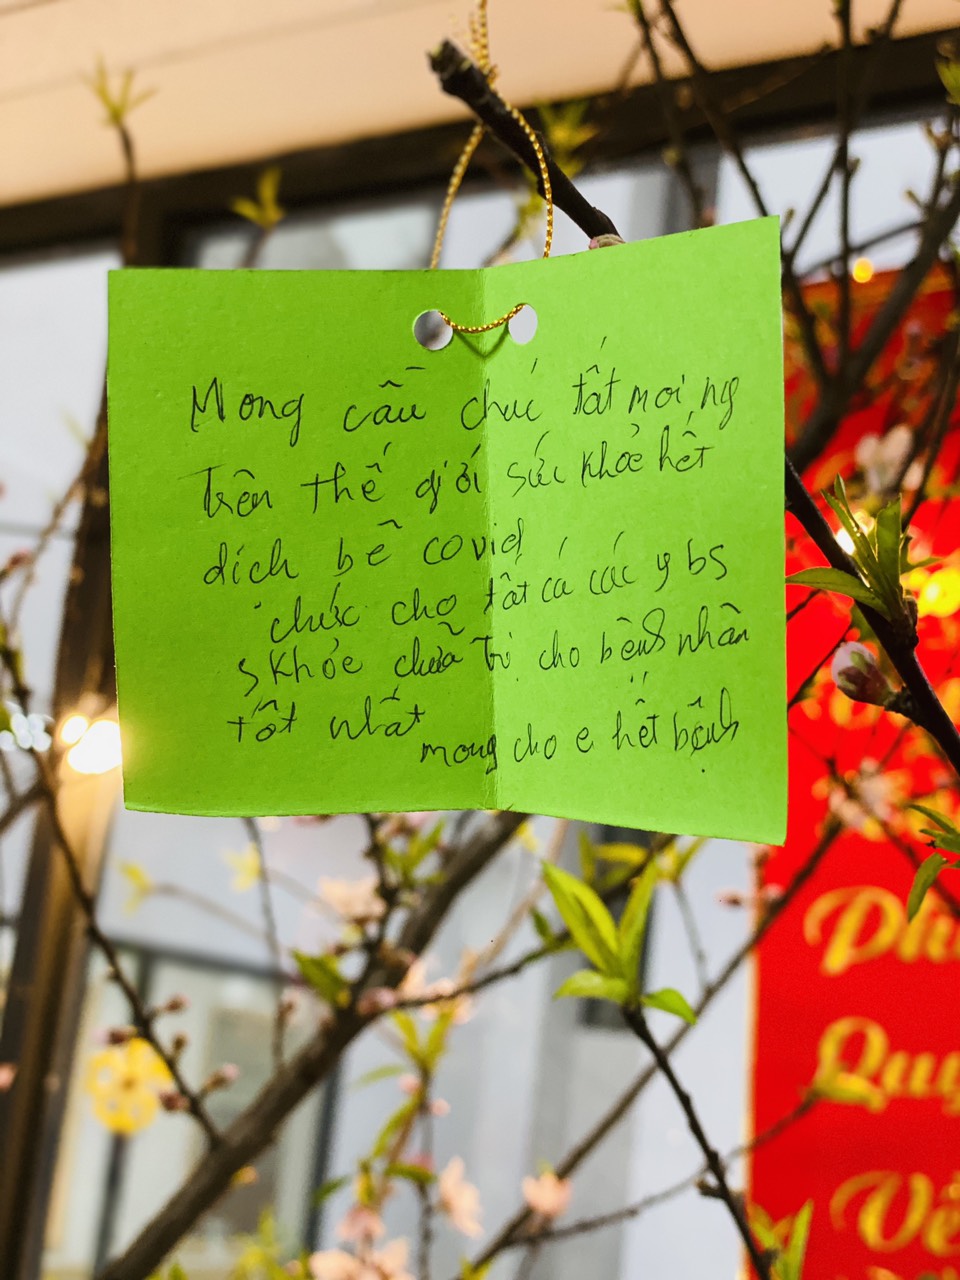 Mong cầu chúc tất mọi ng
trên thế giới sức khỏe hết
dịch bề covid
chúc cho tất cả các y bs
skhỏe chữa trị cho bệnh nhân
tốt nhất
mong cho e hết bệnh
Quý